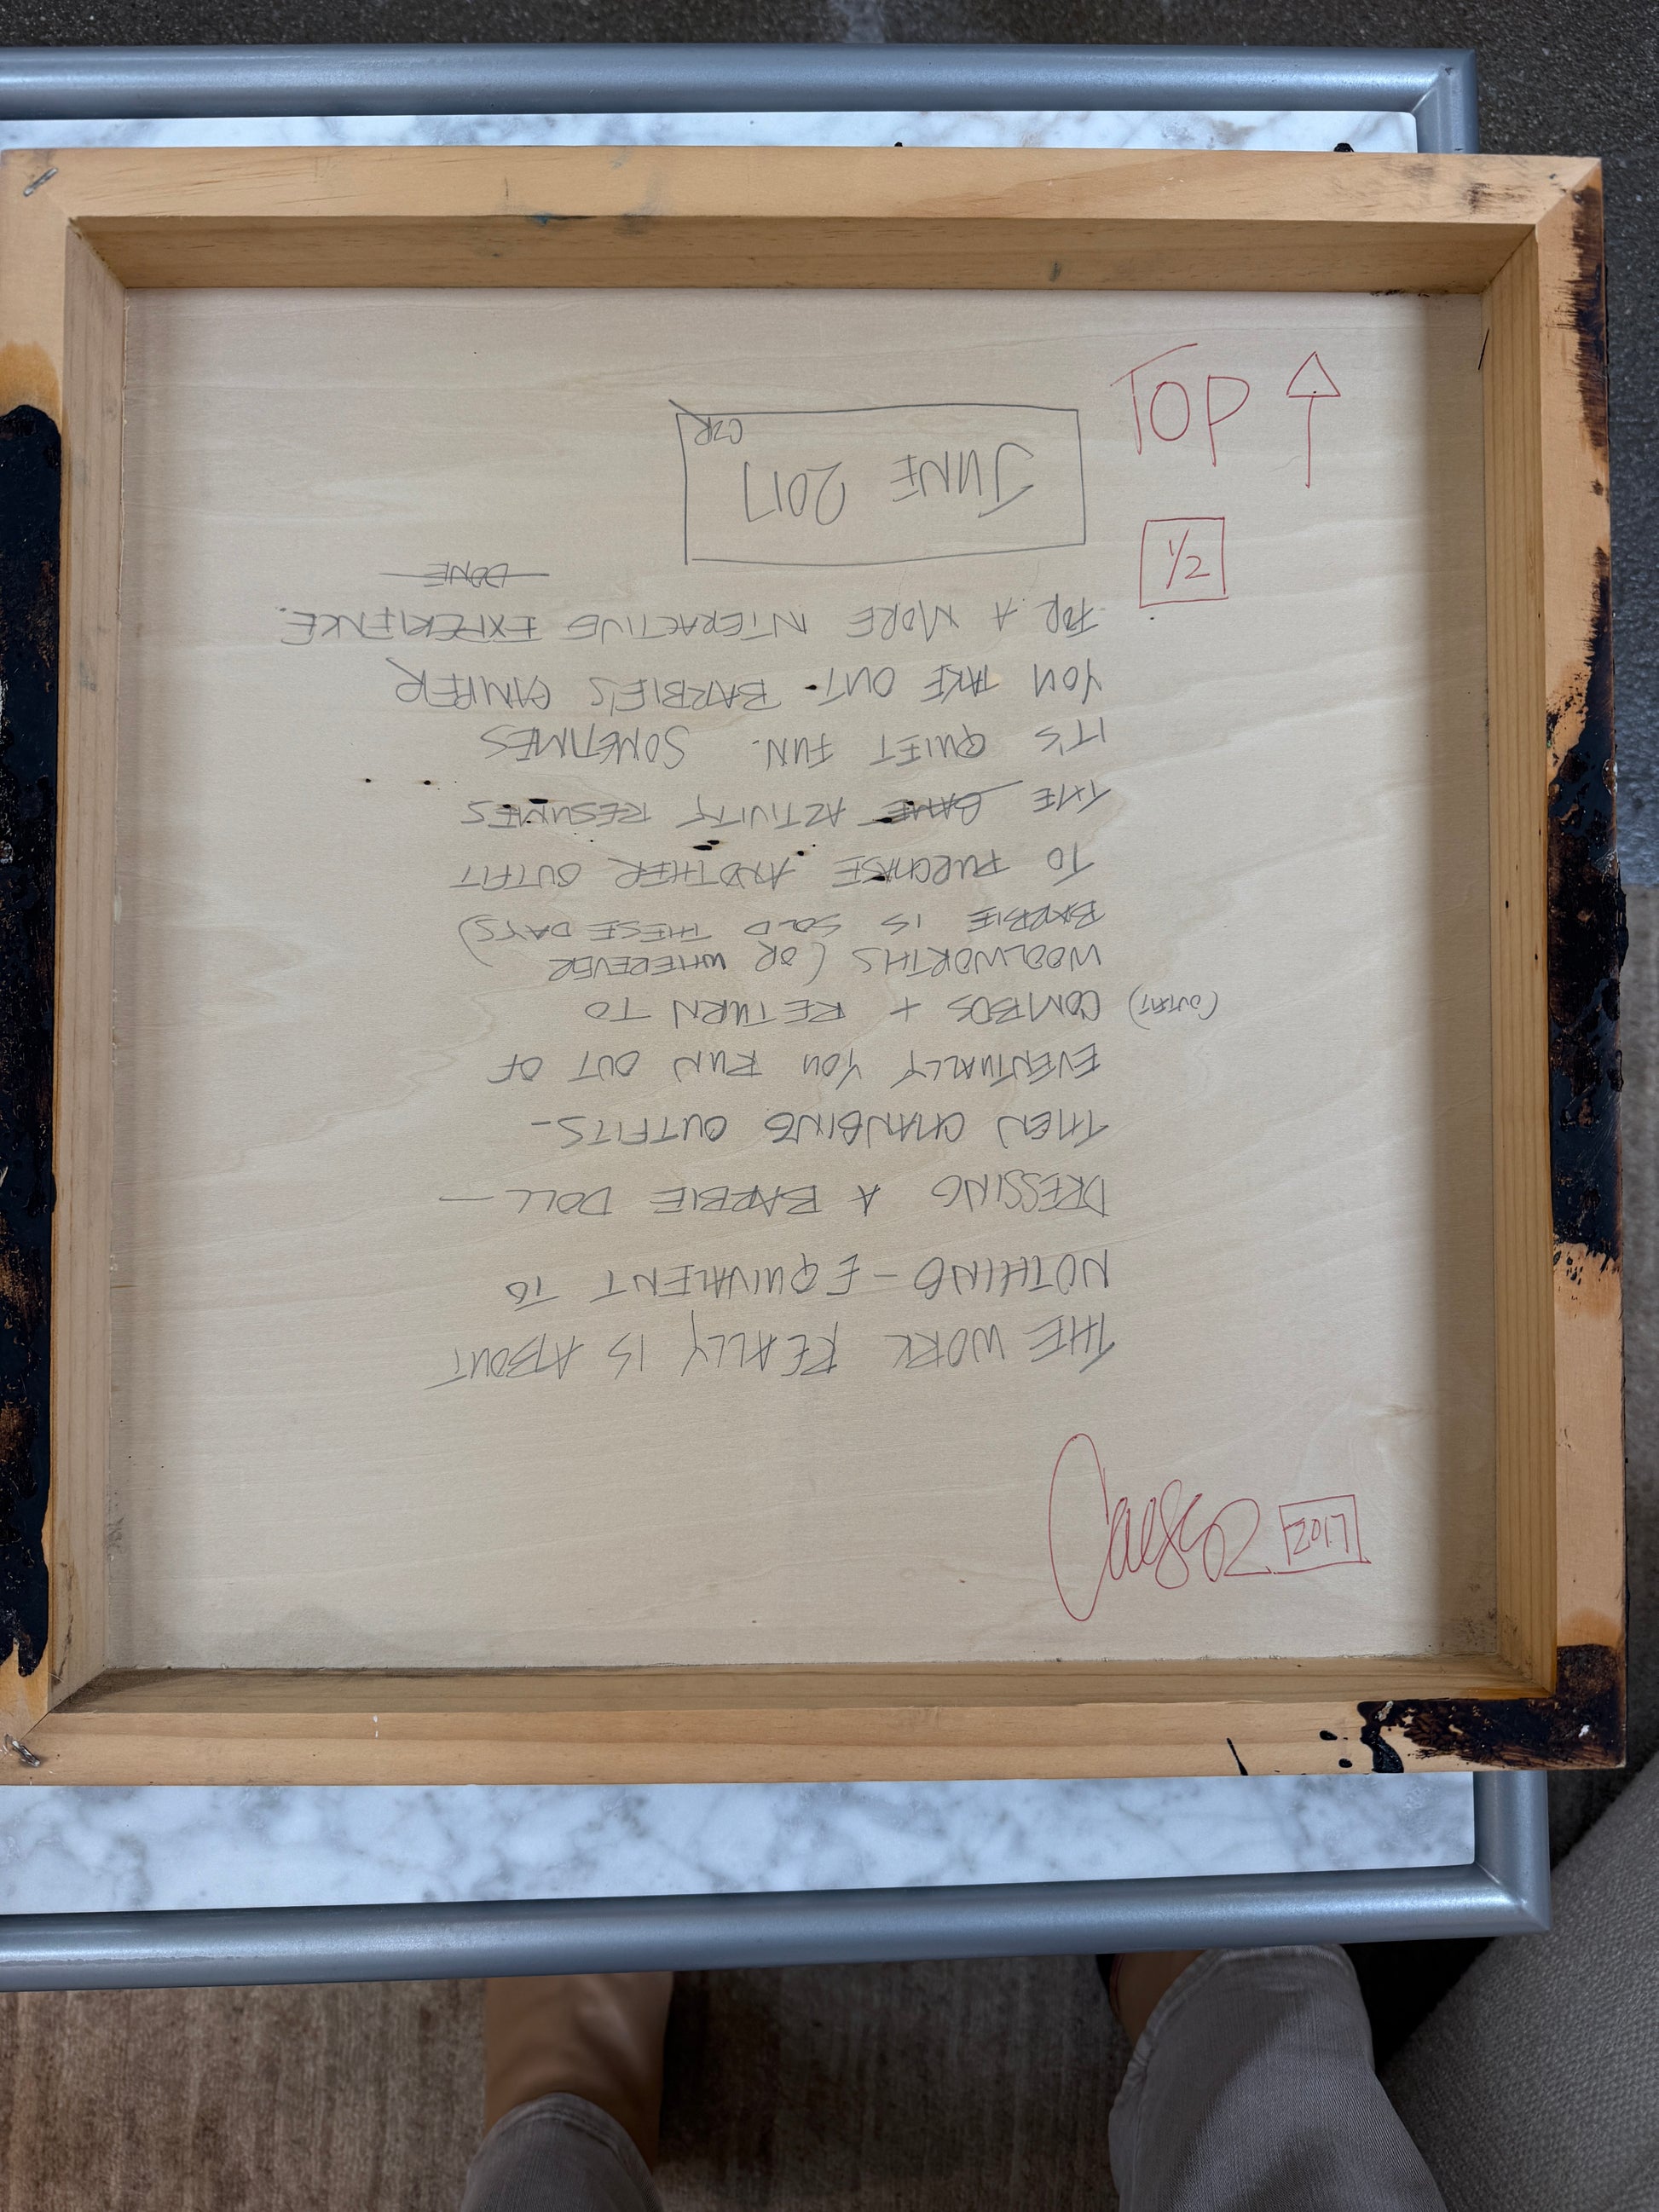 TOP
1/2
THE WORK REALLY IS ABOUT
NOTHING – EQUIVALENT TO
DRESSING A BARBIE DOLL —
THEN CHANGING OUTFITS –
EVENTUALLY YOU RUN OUT OF
(OUTFIT) COMBOS + RETURN TO
WOOLWORTHS (OR WHEREVER
BARBIE IS SOLD THESE DAYS)
TO PURCHASE ANOTHER OUTFIT
THE GAME ACTIVITY RESUMES
IT'S QUIET FUN. SOMETIMES
YOU TAKE OUT BARBIE'S CAMPER
FOR A MORE INTERACTIVE EXPERIENCE.
— DONE —
JUNE 2017
CZR
2017